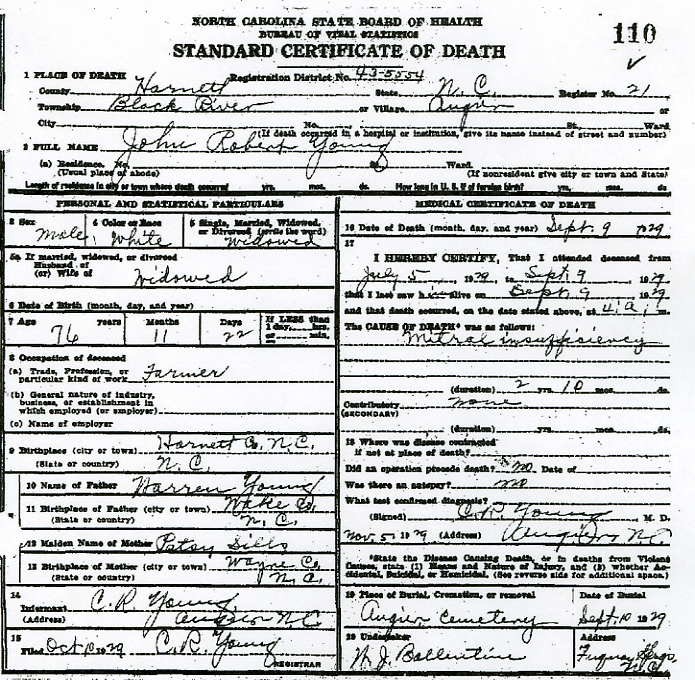 NORTH CAROLINA STATE BOARD OF HEALTH
BUREAU OF VITAL STATISTICS
STANDARD CERTIFICATE OF DEATH
110
1 PLACE OF DEATH Registration District No. 43-5554
County Harnett State N.C. Register No. 21
Township Black River or Village Angier or
City No. St., Ward
(If death occurred in a hospital or institution, give its name instead of street and number)
2 FULL NAME John Robert Young
(a) Residence. No. St. Ward.
(Usual place of abode) (If nonresident give city or town and State)
Length of residence in city or town where death occurred yrs. mos. ds. How long in U. S. if of foreign birth? yrs. mos. ds.
PERSONAL AND STATISTICAL PARTICULARS
3 Sex 4 Color or Race 5 Single, Married, Widowed, or Divorced (write the word)
Male White Widowed
5a If married, widowed, or divorced
Husband of
(or) Wife of Widowed
6 Date of Birth (month, day, and year)
7 Age 76 years Months 11 Days 22 If LESS than 1 day, hrs. or min.
8 Occupation of deceased
(a) Trade, Profession, or particular kind of work Farmer
(b) General nature of industry, business, or establishment in which employed (or employer)
(c) Name of employer
9 Birthplace (city or town) Harnett Co. N.C.
(State or country) N.C.
10 Name of Father Warren Young
11 Birthplace of Father (city or town) Wake Co.
(State or country) N.C.
12 Maiden Name of Mother Patsy Sills
13 Birthplace of Mother (city or town) Wayne Co.
(State or country) N.C.
14
Informant C. R. Young
(Address) Angier N.C.
15
Filed Oct 1929 C. R. Young
REGISTRAR
MEDICAL CERTIFICATE OF DEATH
16 Date of Death (month, day, and year) Sept. 9 1929
17
I HEREBY CERTIFY, That I attended deceased from
July 5, 1929, to Sept. 9, 1929
that I last saw h alive on Sept. 9, 1929
and that death occurred, on the date stated above, at 4 a. m.
The CAUSE OF DEATH* was as follows:
Mitral insufficiency
(duration) 2 yrs. 10 mos. ds.
Contributory none
(SECONDARY)
(duration) yrs. mos. ds.
18 Where was disease contracted
if not at place of death?
Did an operation precede death? no Date of
Was there an autopsy? no
What test confirmed diagnosis?
(Signed) C. R. Young M. D.
Nov. 5, 1929 (Address) Angier N.C.
*State the Disease Causing Death, or in deaths from Violent
Causes, state (1) Means and Nature of Injury, and (2) whether Ac-
cidental, Suicidal, or Homicidal. (See reverse side for additional space.)
19 Place of Burial, Cremation, or removal Date of Burial
Angier Cemetery Sept. 10 1929
20 Undertaker Address
N. J. Ballentine Fuquay Spgs. N.C.